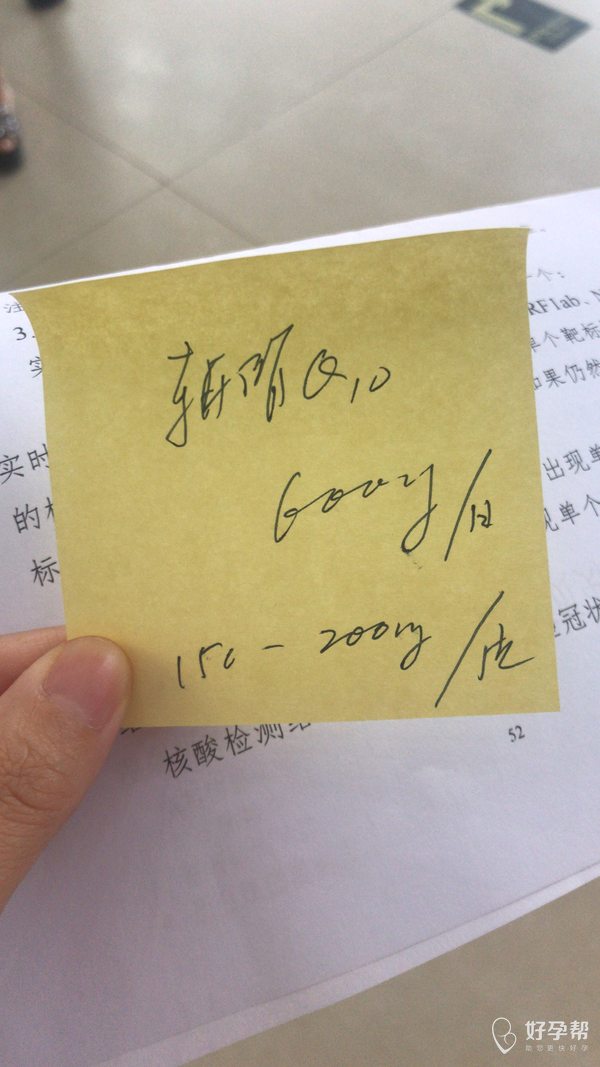 一个：
注
3.
RFlab、
单个靶标
如果仍然
辅酶Q10
实时
600mg/日
出现单
的
现单个
标
150-200mg/片
冠状
核酸检测结
52
好孕帮
助您更快好孕